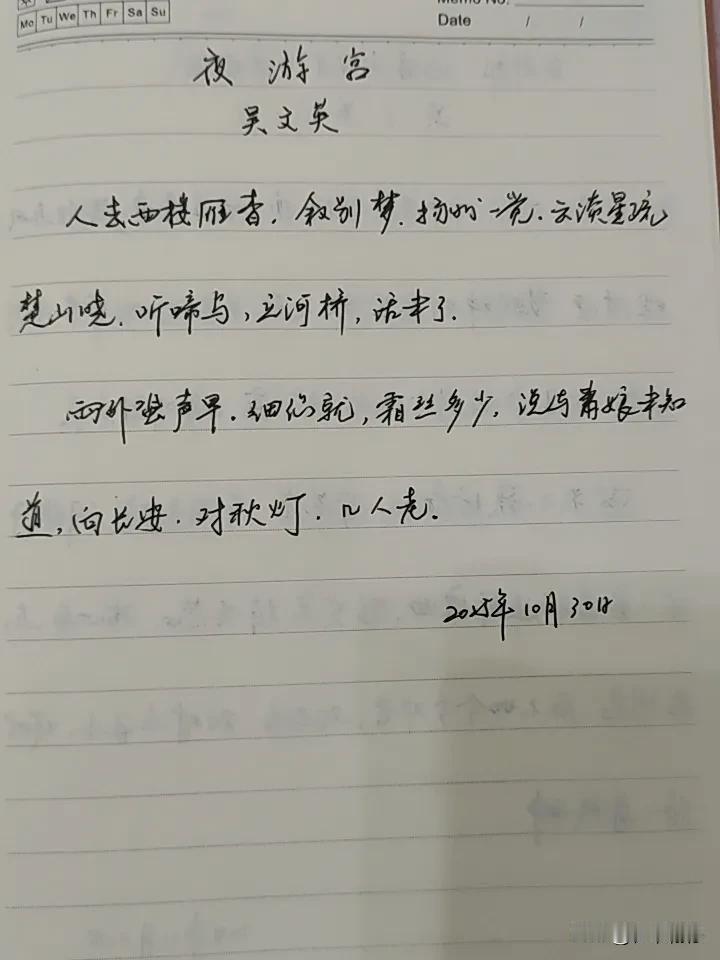 Mo Tu We Th Fr Sa Su
Memo No.
Date / /
夜游宫
吴文英
人去西楼雁杳.叙别梦.扬州一觉.云淡星疏
楚山晓.听啼乌,立河桥,话未了.
雨外蛩声早.细织就,霜丝多少.说与萧娘未知
道,向长安.对秋灯.几人老.
2025年10月30日